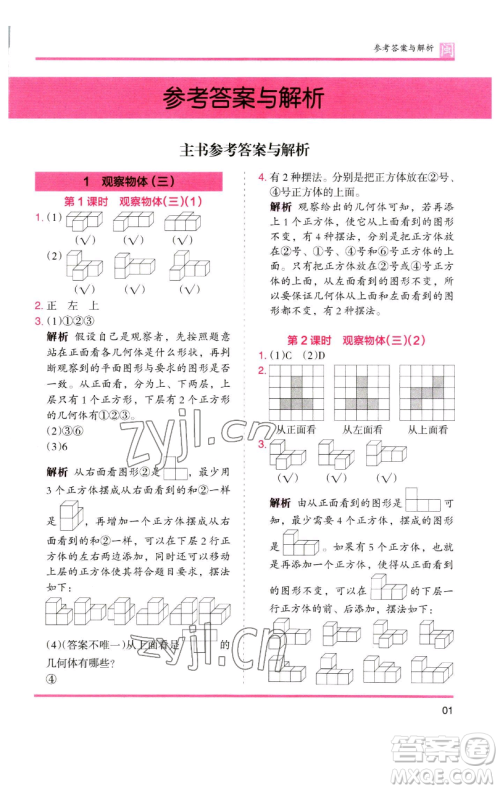 参考答案与解析
参考答案与解析
主书参考答案与解析
1 观察物体(三)
第1课时 观察物体(三)(1)
1. (1)
(√) (√) (√)
(2)
(√) (√) (√)
2. 正 左 上
3. (1)①②③
解析 假设自己是观察者,按照题意
站在正面看各几何体是什么形状,再判
断观察到的平面图形与要求的图形是
否一致。从正面看,下层有2个,上层
有1个正方形的几何体有①②③。
(2)③⑥
(3)6
解析 从右面看图形②是 ,最少用
3个正方体摆成的和②一样的和②一样
是 ,再增加1个正方体,可以在下层2个正
方体的左右添加,同时还可以移动
上层的正方体的位置。摆法
如下:
(4)(答案不唯一)从上面看是 的
几何体有哪些?
④
4. 有2种摆法。分别是把正方体放在②号、
④号正方体的上面。
解析 观察给出的几何体可知,若再添
上1个正方体,使它从上面看到的图形
不变,有4种摆法,可以把正方体放在
①号、②号、③号、④号正方体的上
面。只有把正方体放在②号、④号正
方体上面时,从正面看到的图形不变,
所以要保证几何体从正面和上面看到
的图形都不变,有2种摆法。
第2课时 观察物体(三)(2)
1. (1)C (2)D
2.
从正面看 从左面看 从上面看
3.
(√) (√)
解析 由从正面看到的图形可知,
最少需要4个正方体,摆成的图形
如 。如果有5个正方体,也
就是在 的基础上,保证从正面看到
的图形不变,可以在 的下层一
行正方体的前后添加,摆法如下:
01
zyjl.cn
zyjl.cn
答案圈
MXQE.COM